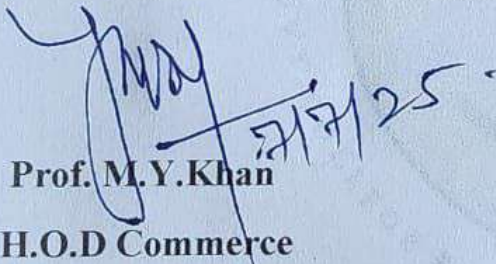 7/7/25
Prof. M.Y.Khan
H.O.D Commerce